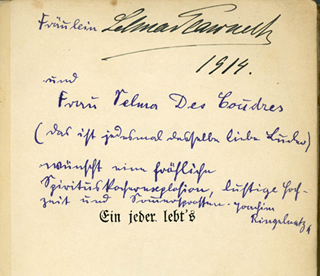 Fräulein Selma
1914.
und
Frau Selma Des Coudres
(das ist jedesmal desselbe liebe Luder)
wünscht eine fröhliche
Spirituskocherexplosion, lustige Hoch-
zeit und Sommersprossen. Joachim
Ringelnatz
Ein jeder lebt's